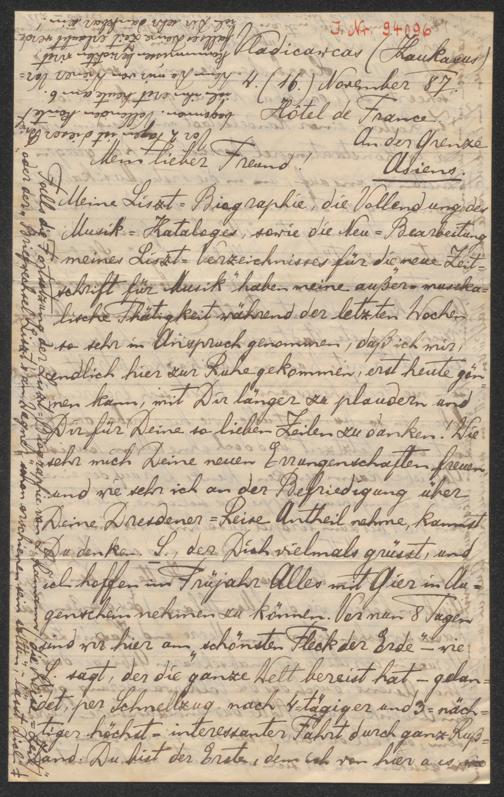 J. Nr. 94096
Vladicawcas (Kaukasus)
4. (16.) November 87.
Hôtel de France
An der Grenze
Asiens.
Mein lieber Freund!
Meine Liszt-Biographie, die Vollendung des
Musik-Kataloges, sowie die Neu-Bearbeitung
meines Liszt-Verzeichnisses für die „neue Zeit-
schrift für Musik“ haben meine außer-musika-
lische Thätigkeit während der letzten Wochen
so sehr in Anspruch genommen, daß ich mir,
endlich hier zur Ruhe gekommen, erst heute gön-
nen kann, mit Dir länger zu plaudern und
Dir für Deine so lieben Zeilen zu danken! Wie
sehr mich Deine neuen Errungenschaften freuen,
und wie sehr ich an der Befriedigung über
Deine Dresdener-Reise Antheil nehme, kannst
Du denken. S., der Dich vielmals grüsst, und
ich hoffen im Früjahr Alles mit Dir in Au-
genschein nehmen zu können. Vor nun 8 Tagen
sind wir hier am „schönsten Fleck der Erde“ – wie
S. sagt, der die ganze Welt bereist hat – gelan-
det, per Schnellzug nach 4-tägiger und 3-näch-
tiger höchst-interessanter Fahrt durch ganz Ruß-
land. Du bist der Erste, dem ich von hier aus
Falls die Fortsetzung der Liszt-Biographie von
oder der „Briefwechsel Liszt's
schon erschienen sein sollte,